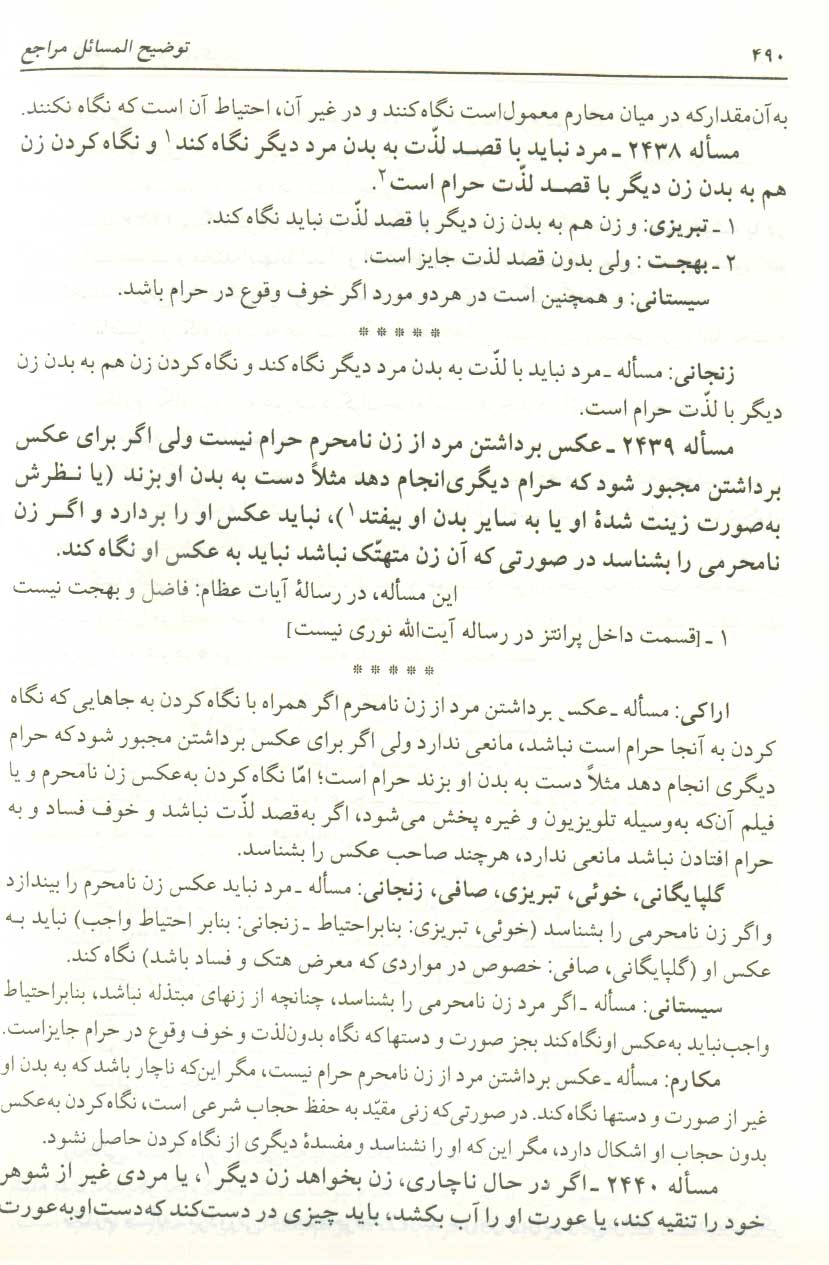 ۴۹۰
توضیح المسائل مراجع
به آن مقدار که در میان محارم معمول است نگاه کنند و در غیر آن، احتیاط آن است که نگاه نکنند.
مسأله ۲۴۳۸ ـ مرد نباید با قصد لذّت به بدن مرد دیگر نگاه کند۱ و نگاه کردن زن
هم به بدن زن دیگر با قصد لذّت حرام است۲.
۱ ـ تبریزی: و زن هم به بدن زن دیگر با قصد لذّت نباید نگاه کند.
۲ ـ بهجت : ولی بدون قصد لذت جایز است.
سیستانی: و همچنین است در هر دو مورد اگر خوف وقوع در حرام باشد.
* * * * *
زنجانی: مسأله ـ مرد نباید با لذّت به بدن مرد دیگر نگاه کند و نگاه کردن زن هم به بدن زن
دیگر با لذّت حرام است.
مسأله ۲۴۳۹ ـ عکس برداشتن مرد از زن نامحرم حرام نیست ولی اگر برای عکس
برداشتن مجبور شود که حرام دیگری انجام دهد مثلاً دست به بدن او بزند (یا نظرش
به صورت زینت شدهٔ او یا به سایر بدن او بیفتد۱)، نباید عکس او را بردارد و اگر زن
نامحرمی را بشناسد در صورتی که آن زن متهتّک نباشد نباید به عکس او نگاه کند.
این مسأله، در رسالهٔ آیات عظام: فاضل و بهجت نیست
۱ ـ [قسمت داخل پرانتز در رساله آیت‌الله نوری نیست]
* * * * *
اراکی: مسأله ـ عکس برداشتن مرد از زن نامحرم اگر همراه با نگاه کردن به جاهایی که نگاه
کردن به آنجا حرام است نباشد، مانعی ندارد ولی اگر برای عکس برداشتن مجبور شود که حرام
دیگری انجام دهد مثلاً دست به بدن او بزند حرام است؛ امّا نگاه کردن به عکس زن نامحرم و یا
فیلم آن‌که به‌وسیله تلویزیون و غیره پخش می‌شود، اگر به‌قصد لذّت نباشد و خوف فساد و به
حرام افتادن نباشد مانعی ندارد، هرچند صاحب عکس را بشناسد.
گلپایگانی، خوئی، تبریزی، صافی، زنجانی: مسأله ـ مرد نباید عکس زن نامحرم را بیندازد
و اگر زن نامحرمی را بشناسد (خوئی، تبریزی: بنابراحتیاط ـ زنجانی: بنابر احتیاط واجب) نباید به
عکس او (گلپایگانی، صافی: خصوص در مواردی که معرض هتک و فساد باشد) نگاه کند.
سیستانی: مسأله ـ اگر مرد زن نامحرمی را بشناسد، چنانچه از زنهای مبتذله نباشد، بنابراحتیاط
واجب نباید به عکس او نگاه کند بجز صورت و دستها که نگاه بدون لذّت و خوف وقوع در حرام جایز است.
مکارم: مسأله ـ عکس برداشتن مرد از زن نامحرم حرام نیست، مگر این‌که ناچار باشد که به بدن او
غیر از صورت و دستها نگاه کند. در صورتی‌که زنی مقیّد به حفظ حجاب شرعی است، نگاه کردن به عکس
بدون حجاب او اشکال دارد، مگر این که او را نشناسد و مفسدهٔ دیگری از نگاه کردن حاصل نشود.
مسأله ۲۴۴۰ ـ اگر در حال ناچاری، زن بخواهد زن دیگر۱، یا مردی غیر از شوهر
خود را تنقیه کند، یا عورت او را آب بکشد، باید چیزی در دست کند که دست او به عورت